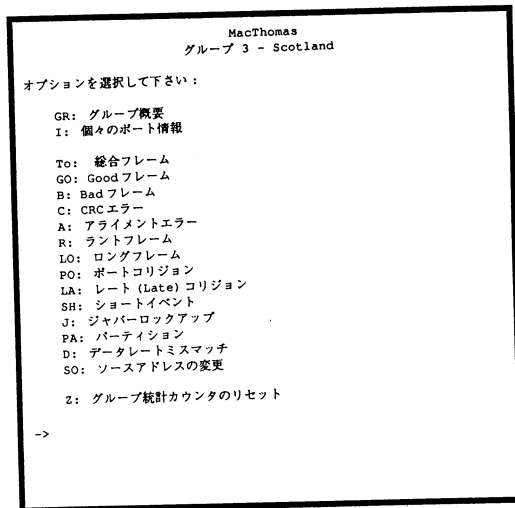 MacThomas
グループ 3 - Scotland
オプションを選択して下さい：
GR: グループ概要
I: 個々のポート情報
To: 総合フレーム
GO: Good フレーム
B: Bad フレーム
C: CRC エラー
A: アライメントエラー
R: ラントフレーム
LO: ロングフレーム
PO: ポートコリジョン
LA: レート (Late) コリジョン
SH: ショートイベント
J: ジャバーロックアップ
PA: パーティション
D: データレートミスマッチ
SO: ソースアドレスの変更
Z: グループ統計カウンタのリセット
->